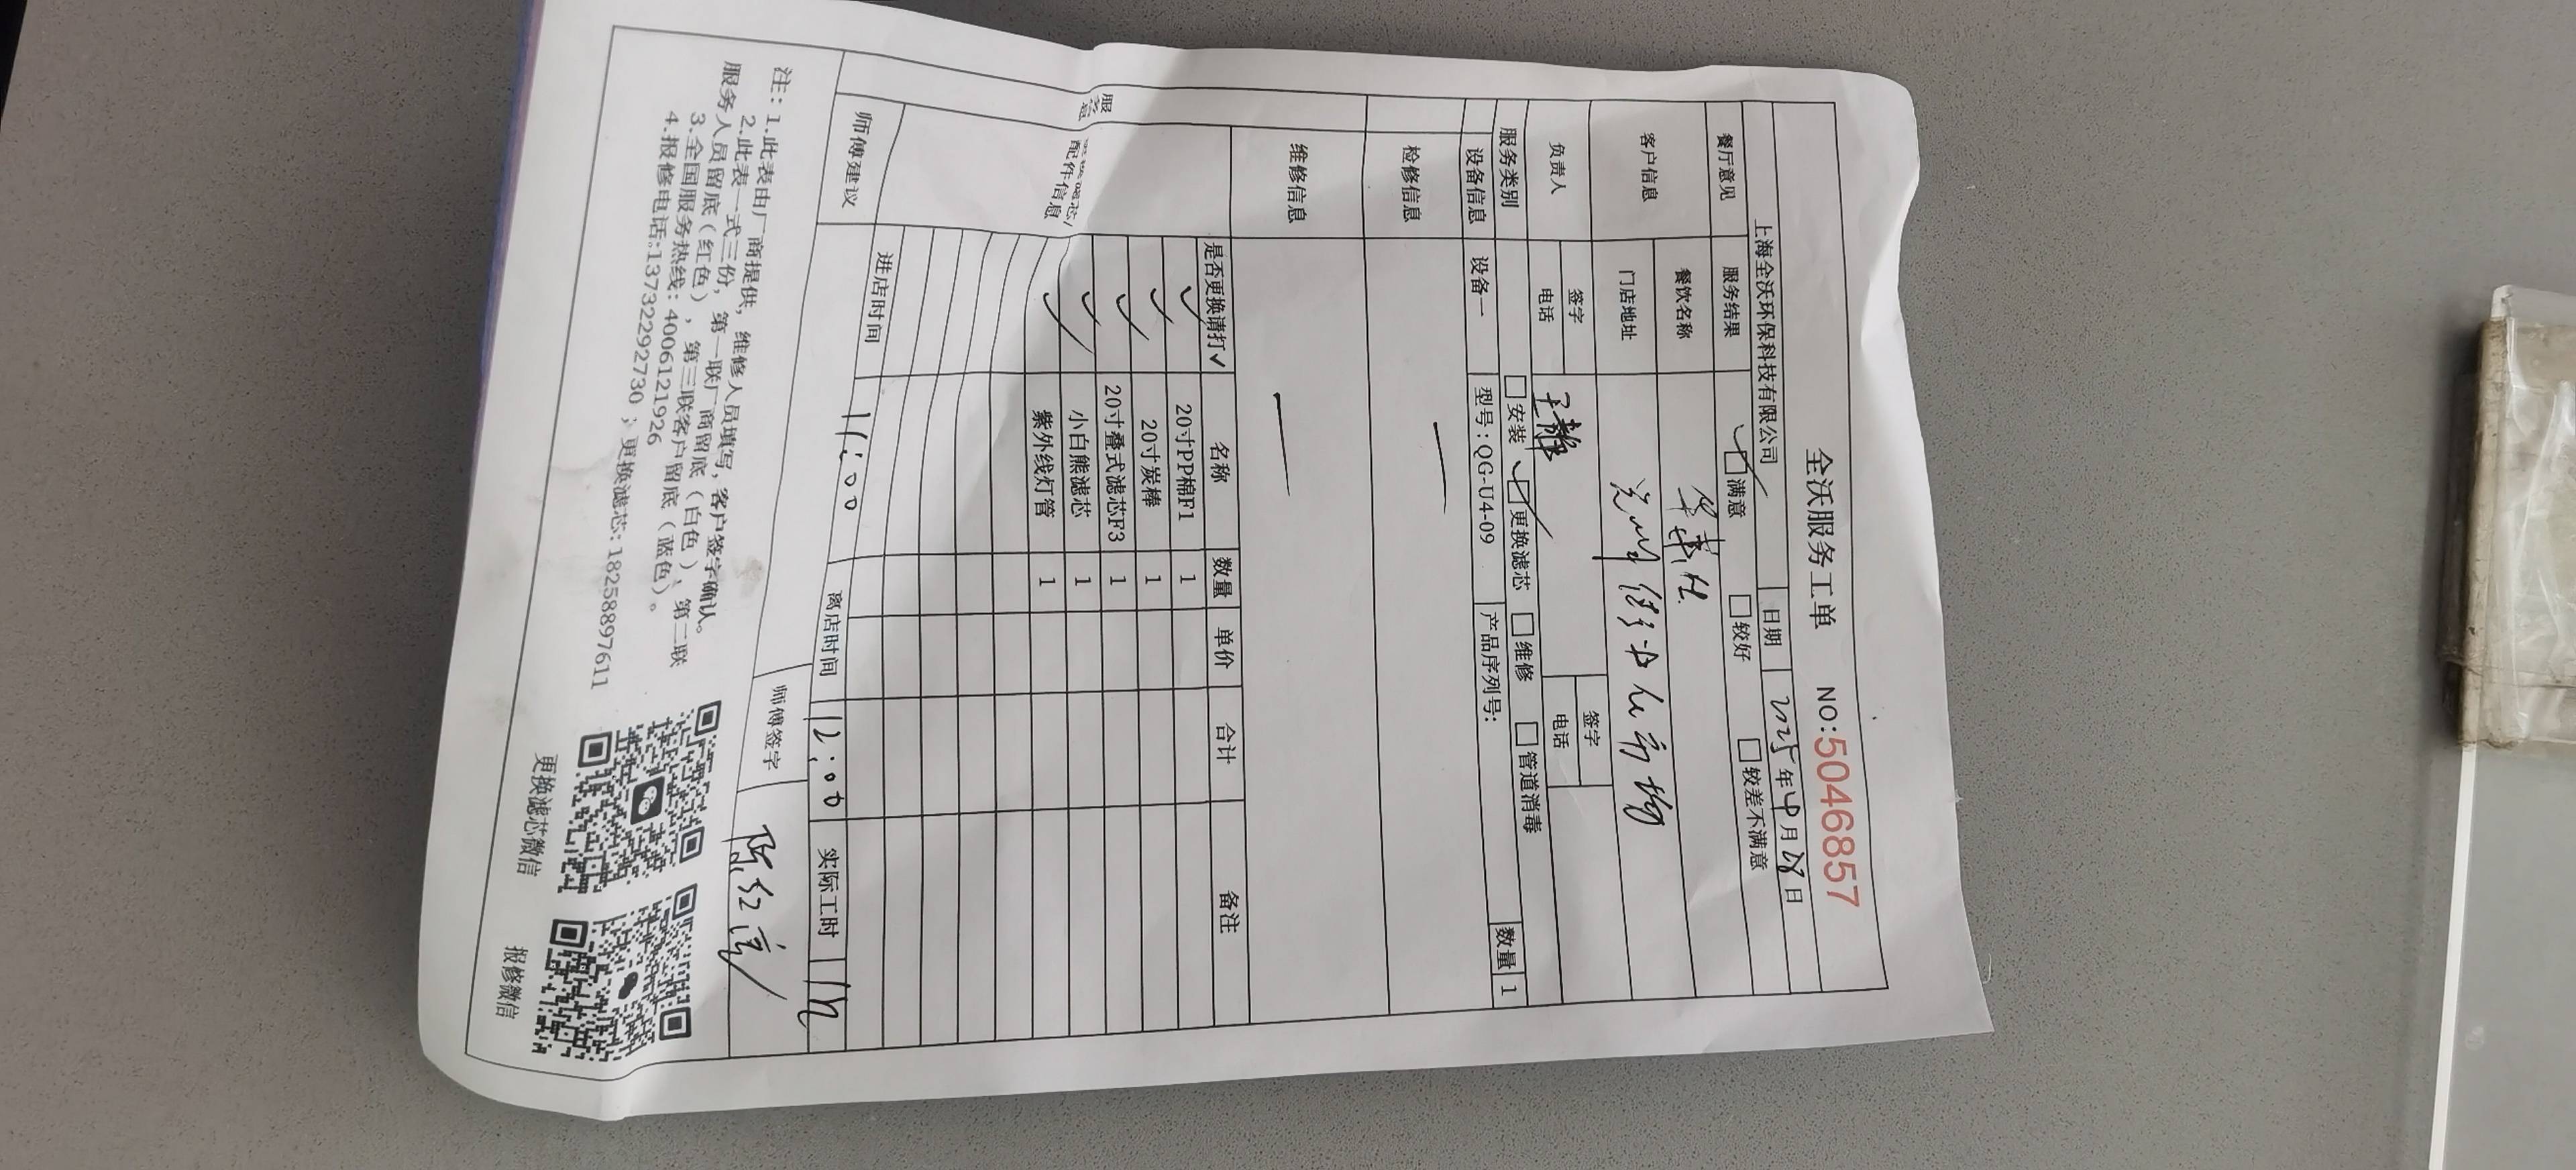 全沃服务工单 NO:5046857
上海全沃环保科技有限公司 日期 2025年4月28日
餐厅意见 服务结果 满意 较好 较差不满意
客户信息 餐饮名称
门店地址
负责人 签字 签字
电话 电话
服务类别 安装 更换滤芯 维修 管道消毒
设备信息 设备一 型号:QG-U4-09 产品序列号: 数量 1
检修信息
维修信息
是否更换请打✓ 名称 数量 单价 合计 备注
✓ 20寸PP棉F1 1
✓ 20寸炭棒 1
✓ 20寸叠式滤芯F3 1
✓ 小白熊滤芯 1
✓ 紫外线灯管 1
滤芯/
配件信息
进店时间 11:00 离店时间 12:00 实际工时 1h
师傅建议 师傅签字
注:1.此表由厂商提供,维修人员填写,客户签字确认。
2.此表一式三份,第一联厂商留底(白色),第二联
服务人员留底(红色),第三联客户留底(蓝色)。
3.全国服务热线:4006121926
4.报修电话:13732292730;更换滤芯:18258897611
更换滤芯微信 报修微信